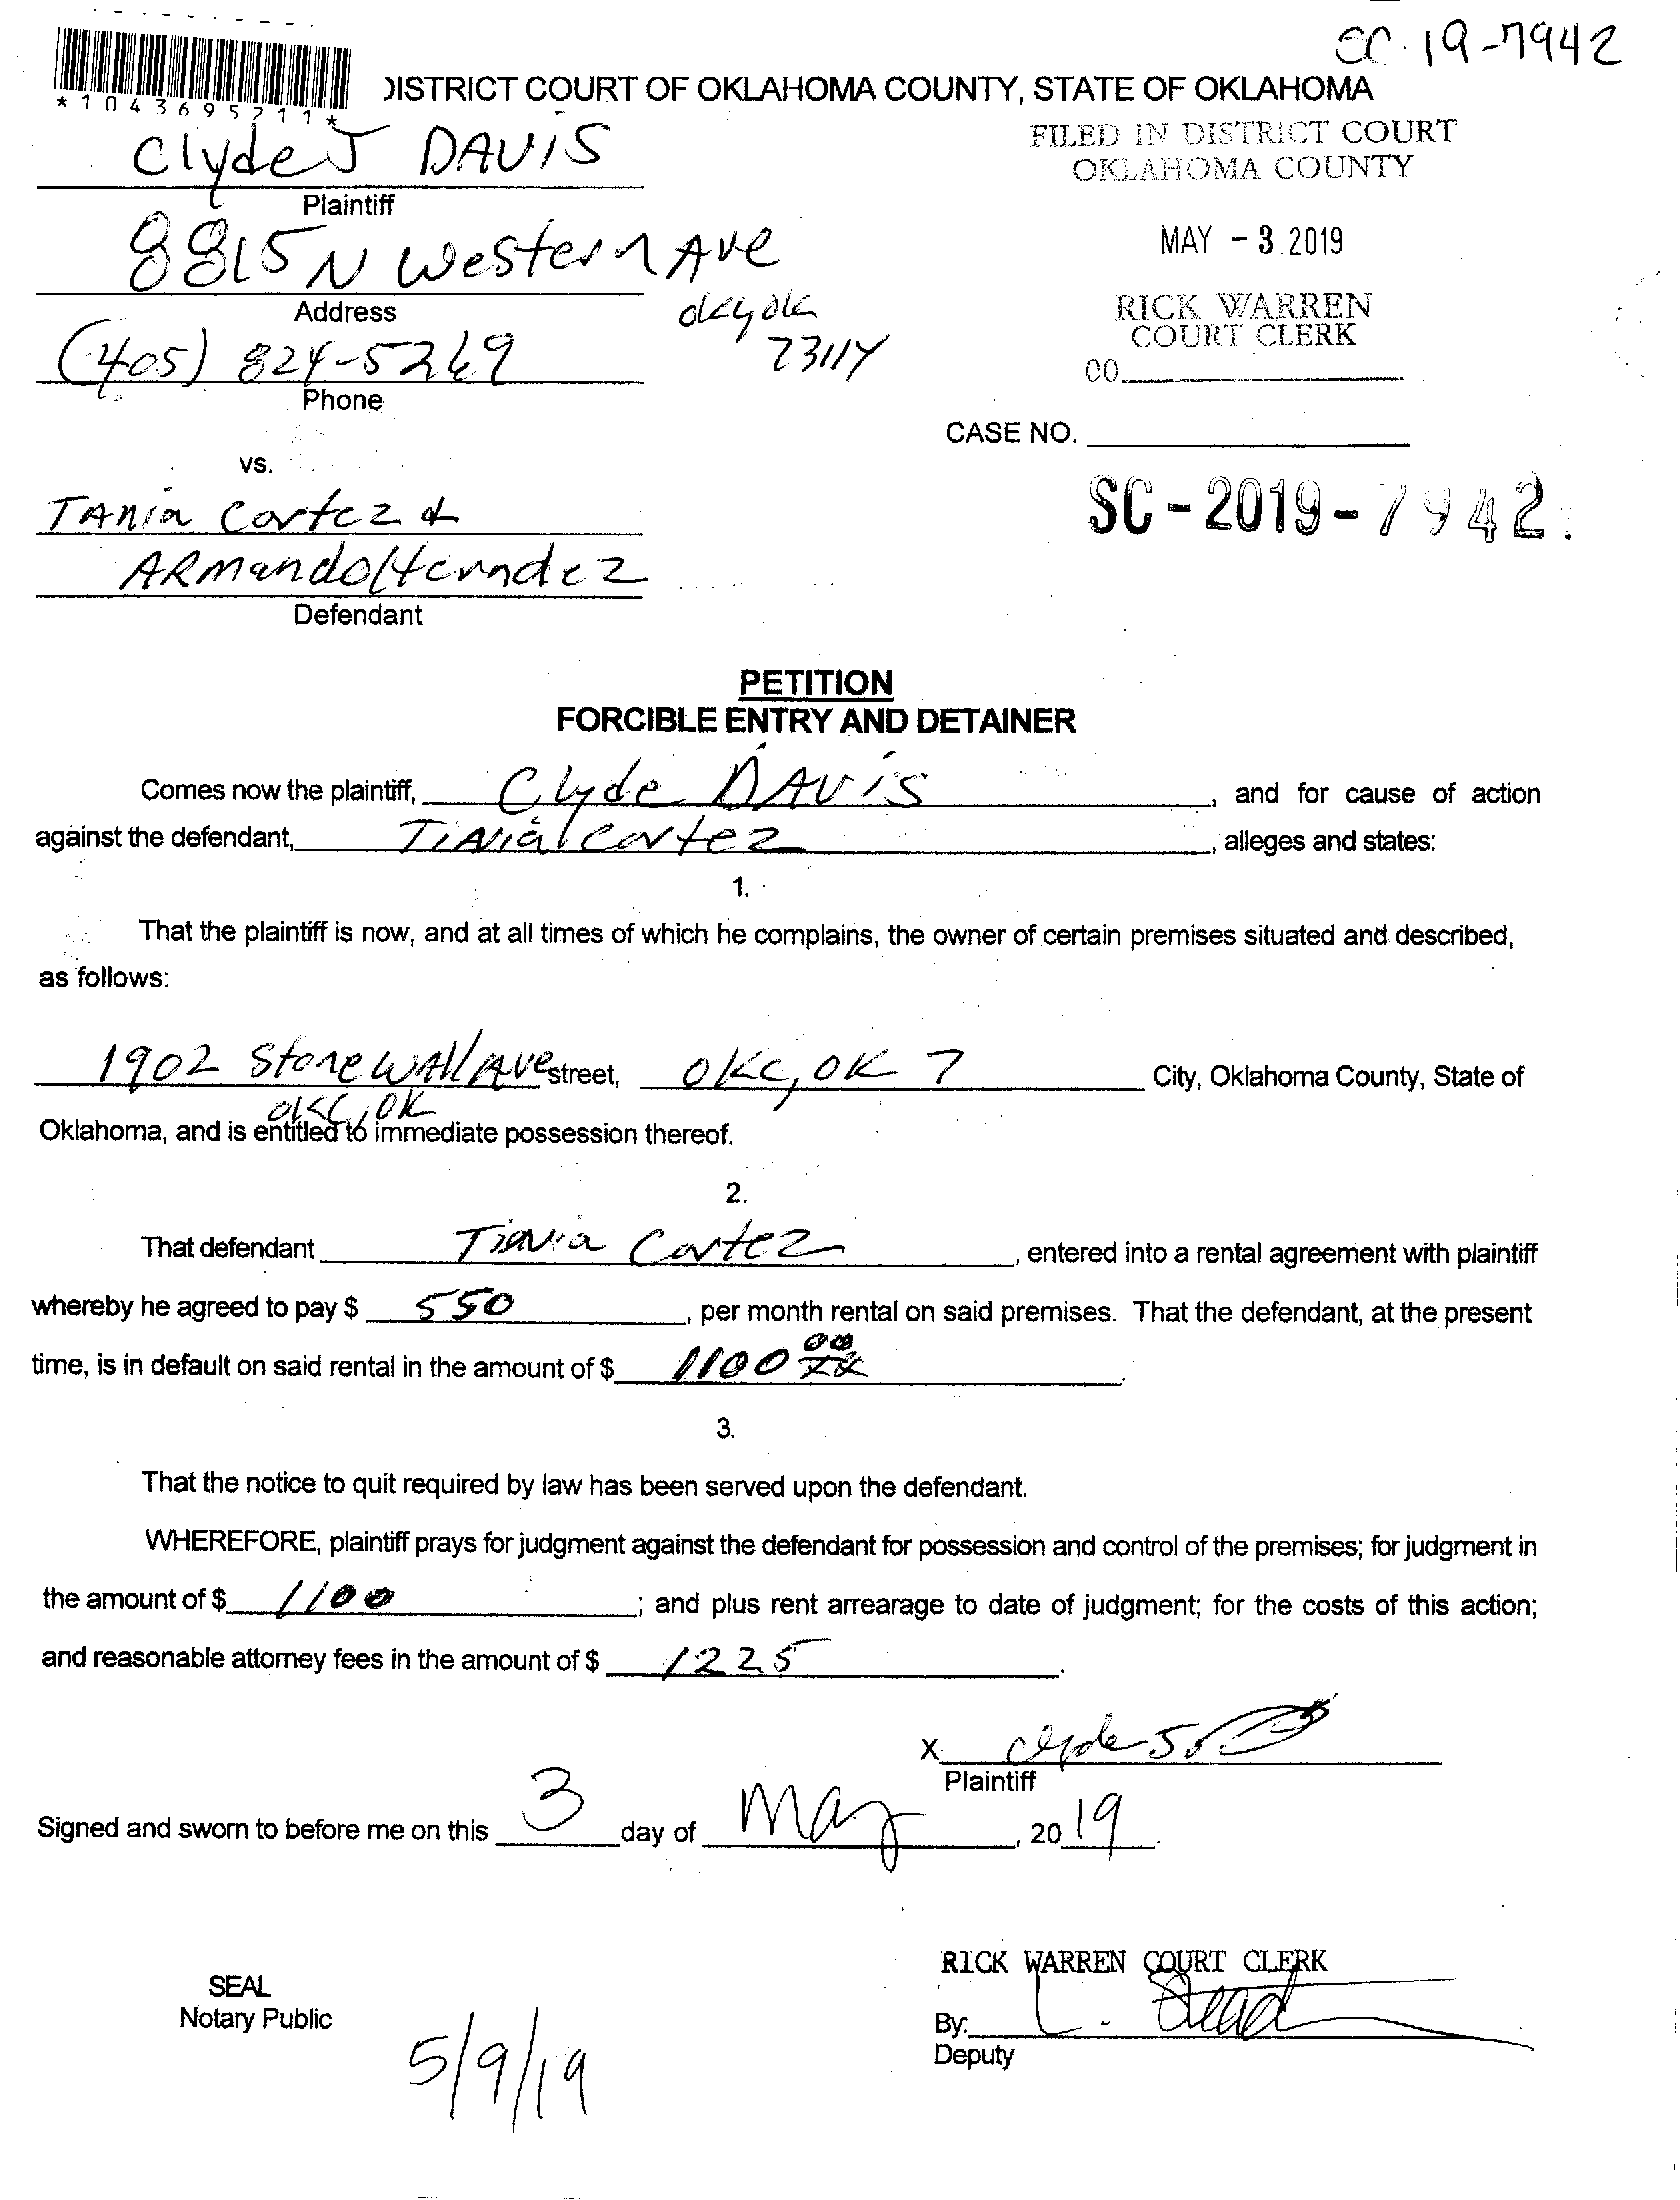 SC-19-7942
DISTRICT COURT OF OKLAHOMA COUNTY, STATE OF OKLAHOMA
*1043695211*
Clyde J DAVIS
FILED IN DISTRICT COURT
OKLAHOMA COUNTY
Plaintiff
8815 N Western Ave
MAY - 3 2019
Address
okc, ok
73114
RICK WARREN
COURT CLERK
(405) 824-5269
Phone
CASE NO.
vs.
TANIA Cortez &
SC - 2019 - 7942
ARmando Herndez
Defendant
PETITION
FORCIBLE ENTRY AND DETAINER
Comes now the plaintiff, Clyde DAVIS, and for cause of action
against the defendant, TiANia Cortez, alleges and states:
1.
That the plaintiff is now, and at all times of which he complains, the owner of certain premises situated and described,
as follows:
1902 Stonewall Ave street, OKC, OK 7 City, Oklahoma County, State of
okc, OK
Oklahoma, and is entitled to immediate possession thereof.
2.
That defendant Tiania Cortez, entered into a rental agreement with plaintiff
whereby he agreed to pay $ 550, per month rental on said premises. That the defendant, at the present
time, is in default on said rental in the amount of $ 1100 00/xx.
3.
That the notice to quit required by law has been served upon the defendant.
WHEREFORE, plaintiff prays for judgment against the defendant for possession and control of the premises; for judgment in
the amount of $ 1100; and plus rent arrearage to date of judgment; for the costs of this action;
and reasonable attorney fees in the amount of $ 1225.
X Clyde
Plaintiff
Signed and sworn to before me on this 3 day of May, 2019.
RICK WARREN COURT CLERK
SEAL
Notary Public
By:
Deputy
5/9/19